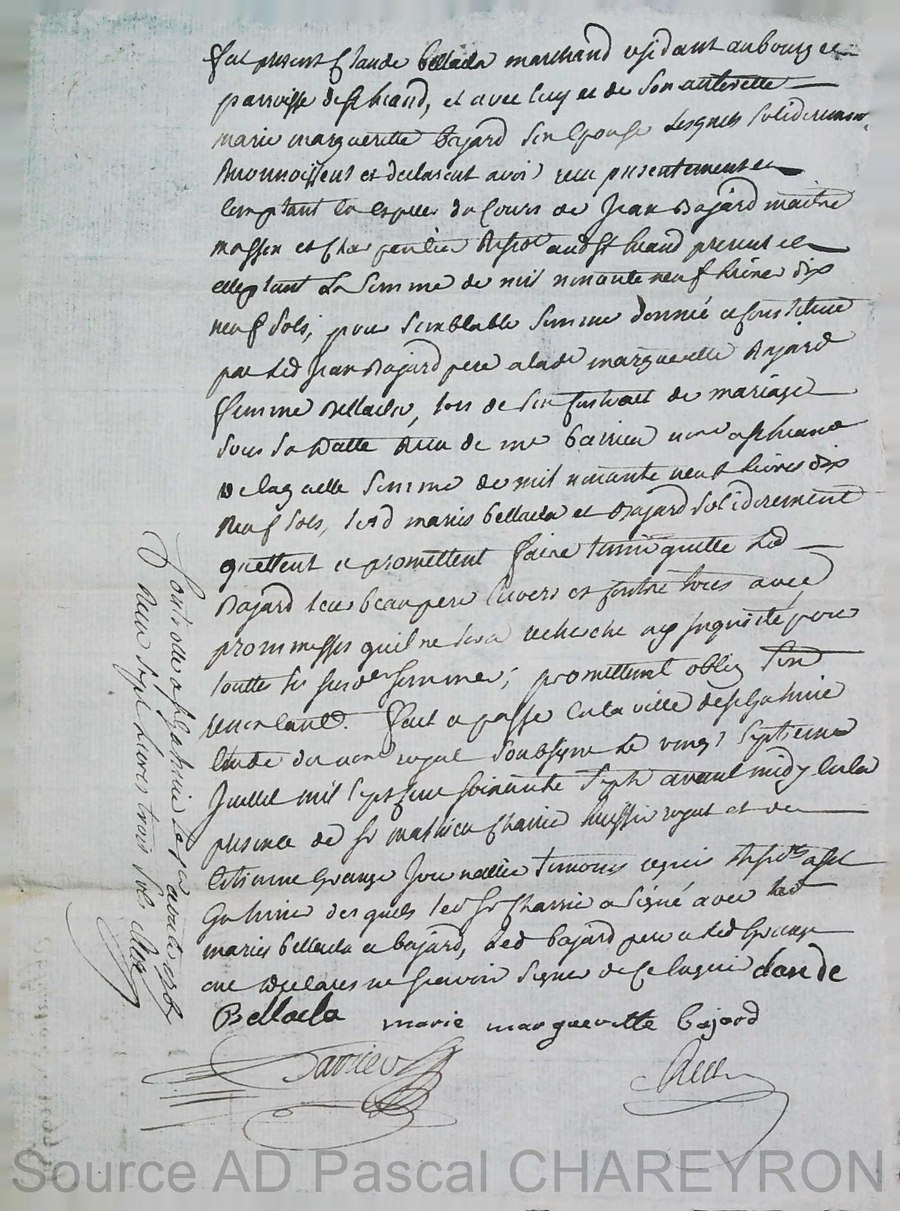 fut present Claude Bellacla marchand residant au bourg et
parroisse de st heand, et avec luy et de son authorette
marie margueritte Bajard son epouse lesquels solidairement
Reconnoissent et declarent avoir receu presentement et
comptant en especes du cours de Jean Bajard maitre
masson et charpentier aud st heand present et
acceptant La somme de mil nonante neuf livres dix
neuf sols, pour semblable somme donnée et constituée
par led Jean Bajard pere a lade margueritte Bajard
femme Bellacla, lors de son contrat de mariage
sous sa datte Receu de me nore a st heand
De laquelle somme de mil nonante neuf livres dix
neuf sols, lesd mariés Bellacla et Bajard solidairement
quittent et promettent faire tenir quitte led
Bajard leur beau pere envers et contre tous avec
prommesses qu'il ne sera recherché ny inquieté pour
toutte la susde somme; promettent oblig son
Fait et passé en la ville de st Galmie
Etude du nore royal soubsigné Le vingt septieme
Juillet mil sept cent soixante sept avant midy en la
presence de sr mathieu Charrie huissier royal et de
Etienne Grange Journallier temoins requis a st
Galmie desquels led sr Charrie a signé avec lesd
mariés Bellacla et Bajard, led Bajard pere et led Grange
ont declarés ne sçavoir signer de ce enquis claude
Bellacla marie margueritte bajard
Controllé a st Galmie le
Receu sept livres trois sols
Source AD Pascal CHAREYRON